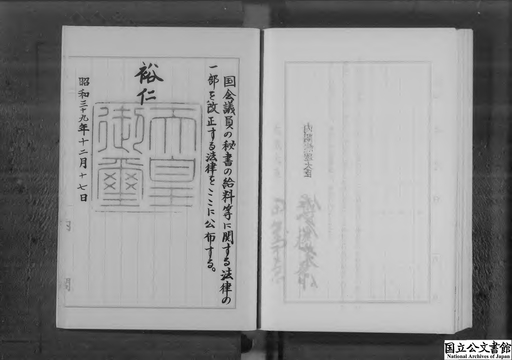 国会議員の秘書の給料等に関する法律の
一部を改正する法律をここに公布する。
裕仁
天皇御璽
昭和三十九年十二月十七日
国立公文書館
National Archives of Japan